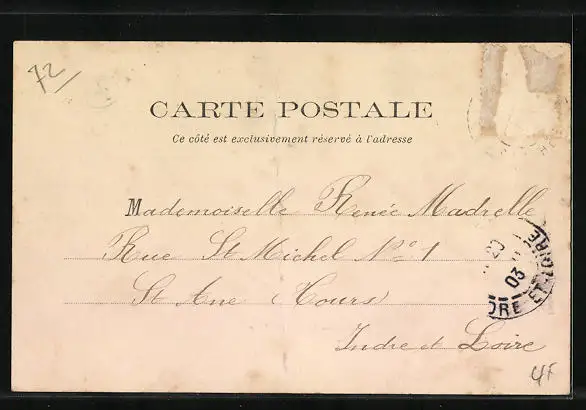 72
CARTE POSTALE
Ce côté est exclusivement réservé à l'adresse
Mademoiselle Renée Madrelle
Rue St Michel No 1
St Ane (Tours)
Indre et Loire
20
03
INDRE-ET-LOIRE
4F